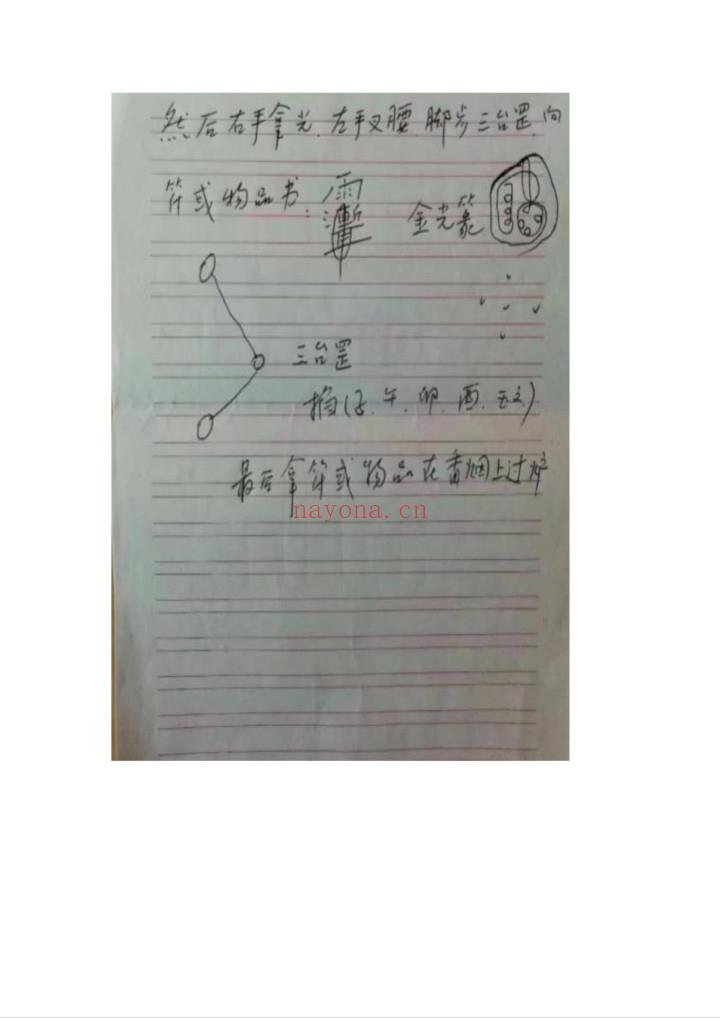 然后右手拿光.左手叉腰.脚步三台罡.向
符或物品书:
金光篆
三台罡
掐(子.午.卯.酉.玉文)
最后拿符或物品在香烟上过炉
nayona.cn